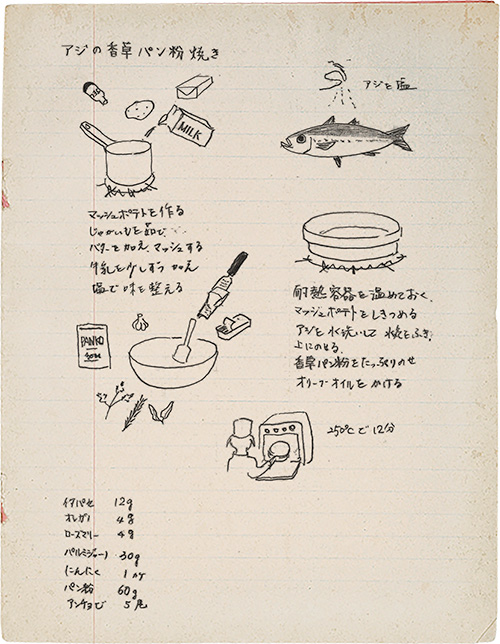 アジの香草パン粉焼き
MILK
アジを塩
マッシュポテトを作る
じゃがいもを茹で、
バターを加え、マッシュする
牛乳を少しずつ加え
塩で味を整える
PANKO
耐熱容器を温めておく、
マッシュポテトをしきつめる
アジを水洗いして 水をふき、
上にのせる、
香草パン粉をたっぷりのせ
オリーブオイルをかける
250℃で12分
イタパセ 12g
オレガノ 4g
ローズマリー 4g
パルミジャーノ 30g
にんにく 1ヶ
パン粉 60g
アンチョビ 5尾